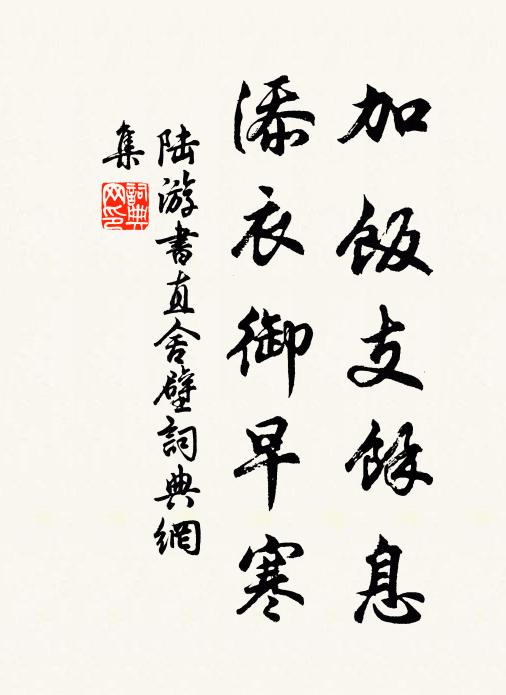 加飯支餘息
添衣御早寒
陸游書直舍壁詞典網
集
詞典
网印